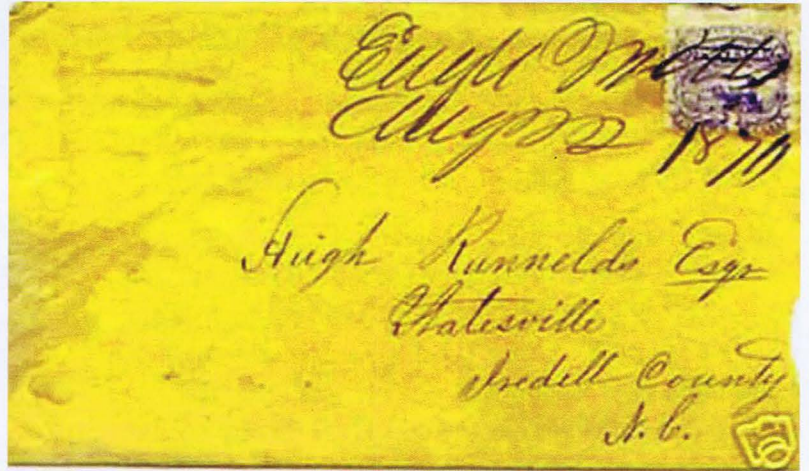 Eagle Mills
Aug 22 1870
Hugh Runnelds Esqr
Statesville
Iredell County
N. C.